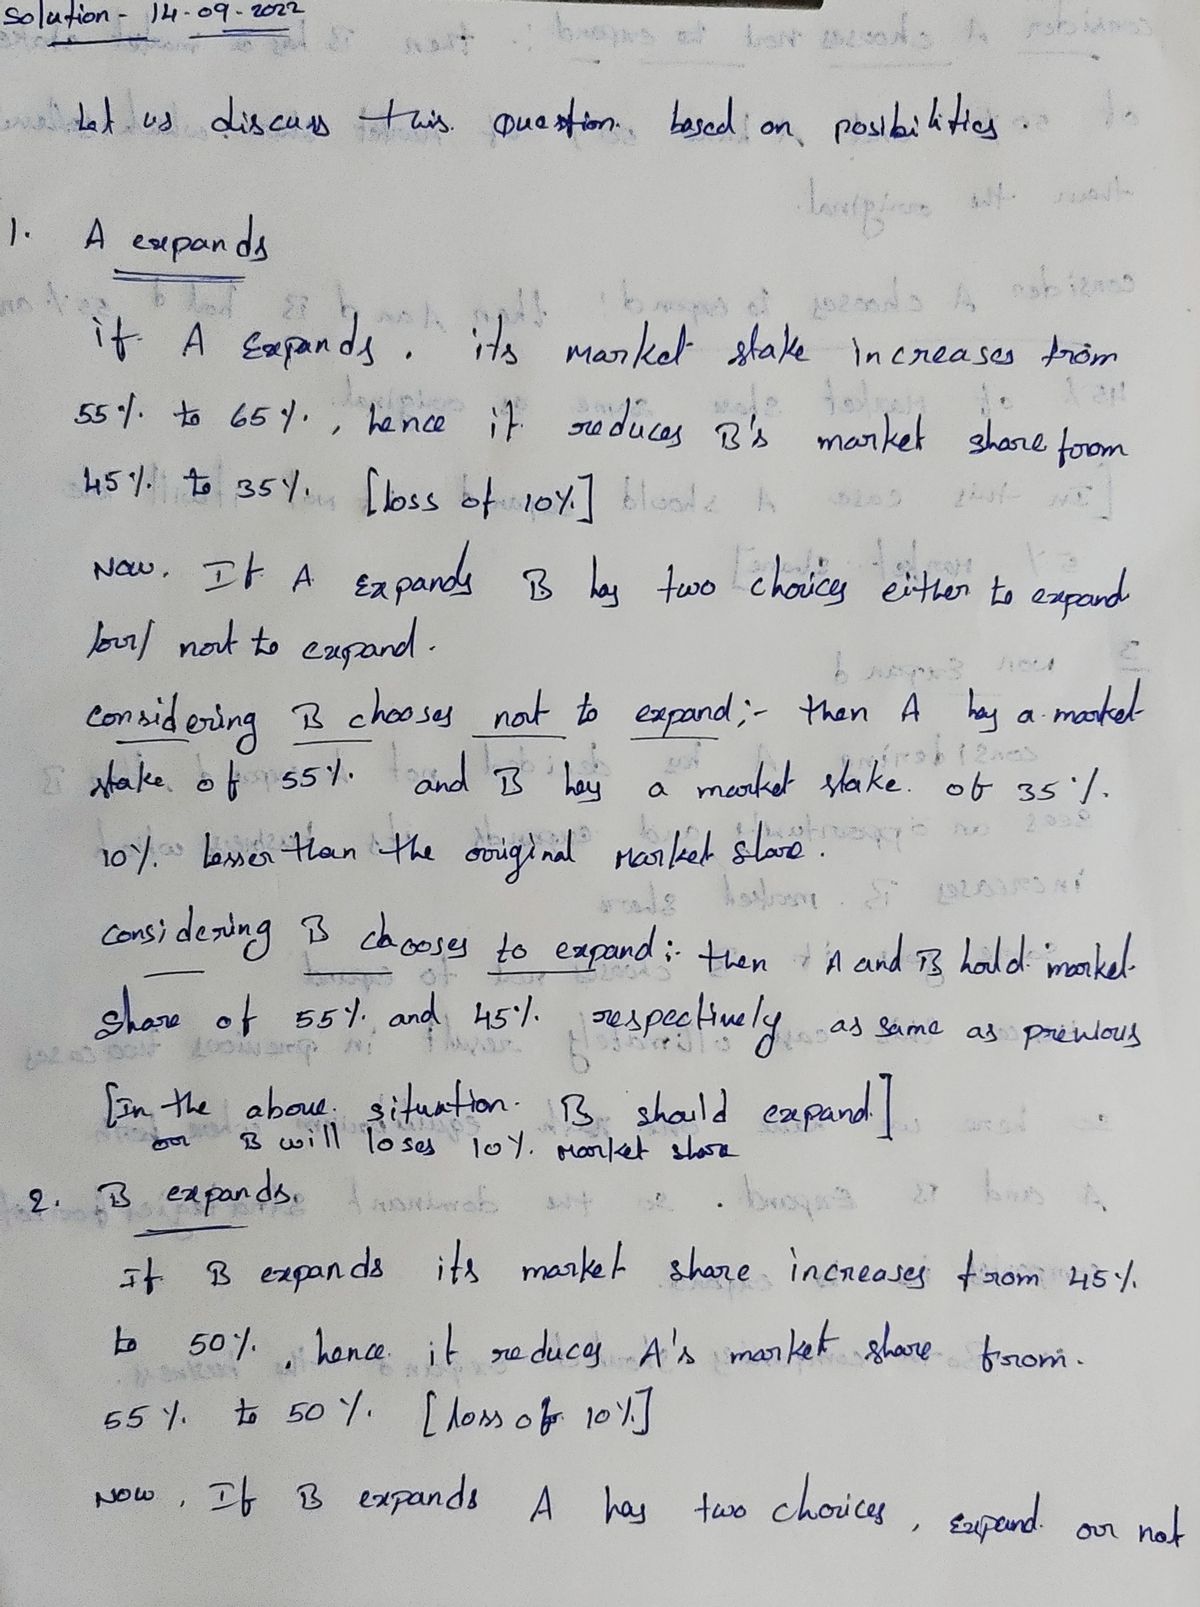 Solution - 14-09-2022
Let us discuss this Question. based on posibilities.
1. A expands
if A Expands. its market stake increases from
55%. to 65%., hence it reduces B's market share from
45%. to 35%. [loss of 10%.]
Now. If A Expands B has two choices either to expand
/or/ not to expand.
considering B chooses not to expand;- then A has a market
stake of 55%. and B has a market stake. of 35%.
10%. lesser than the original Market share.
considering B chooses to expand:- then A and B hold market
share of 55%. and 45%. respectively as same as previous
[In the above situation. B should expand.]
or B will loses 10%. Market share
2. B expands.
If B expands its market share increases from 45%.
to 50%., hence it reduces A's market share from.
55%. to 50%. [loss of 10%.]
Now, If B expands A has two choices, Expand. or not